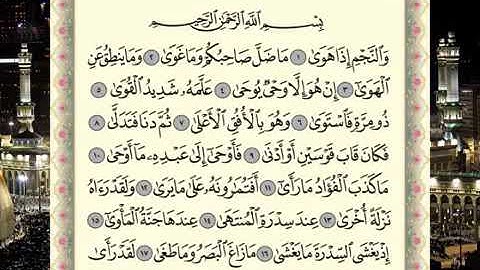 بِسْمِ اللَّهِ الرَّحْمَٰنِ الرَّحِيمِ
وَالنَّجْمِ إِذَا هَوَىٰ ١ مَا ضَلَّ صَاحِبُكُمْ وَمَا غَوَىٰ ٢ وَمَا يَنطِقُ عَنِ
الْهَوَىٰ ٣ إِنْ هُوَ إِلَّا وَحْيٌ يُوحَىٰ ٤ عَلَّمَهُ شَدِيدُ الْقُوَىٰ ٥
ذُو مِرَّةٍ فَاسْتَوَىٰ ٦ وَهُوَ بِالْأُفُقِ الْأَعْلَىٰ ٧ ثُمَّ دَنَا فَتَدَلَّىٰ ٨
فَكَانَ قَابَ قَوْسَيْنِ أَوْ أَدْنَىٰ ٩ فَأَوْحَىٰ إِلَىٰ عَبْدِهِ مَا أَوْحَىٰ ١٠
مَا كَذَبَ الْفُؤَادُ مَا رَأَىٰ ١١ أَفَتُمَارُونَهُ عَلَىٰ مَا يَرَىٰ ١٢ وَلَقَدْ رَآهُ
نَزْلَةً أُخْرَىٰ ١٣ عِندَ سِدْرَةِ الْمُنتَهَىٰ ١٤ عِندَهَا جَنَّةُ الْمَأْوَىٰ ١٥
إِذْ يَغْشَى السِّدْرَةَ مَا يَغْشَىٰ ١٦ مَا زَاغَ الْبَصَرُ وَمَا طَغَىٰ ١٧ لَقَدْ رَأَىٰ